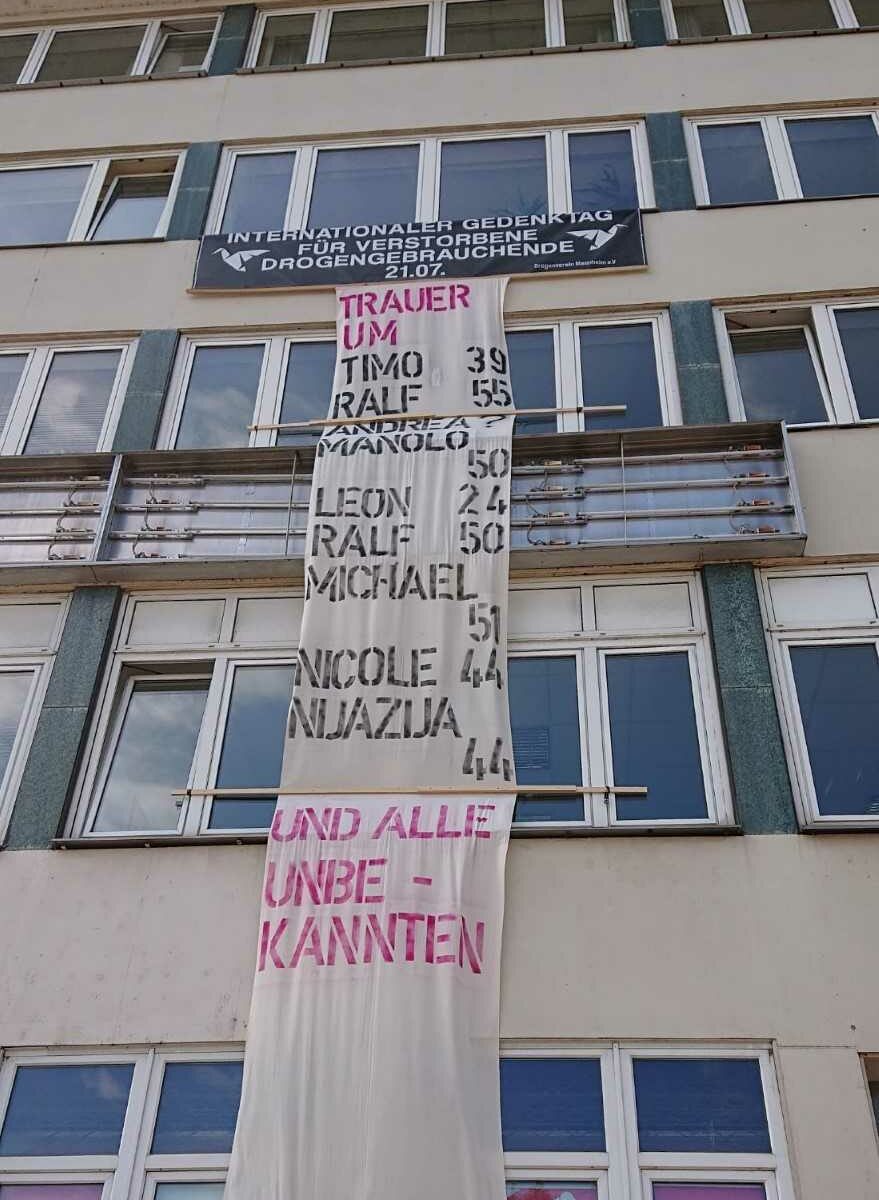 INTERNATIONALER GEDENKTAG
FÜR VERSTORBENE
DROGENGEBRAUCHENDE
21.07.
Drogenverein Mannheim e.V
TRAUER
UM
TIMO 39
RALF 55
ANDREA ?
MANOLO
50
LEON 24
RALF 50
MICHAEL
51
NICOLE 44
NIJAZIJA
44
UND ALLE
UNBE -
KANNTEN